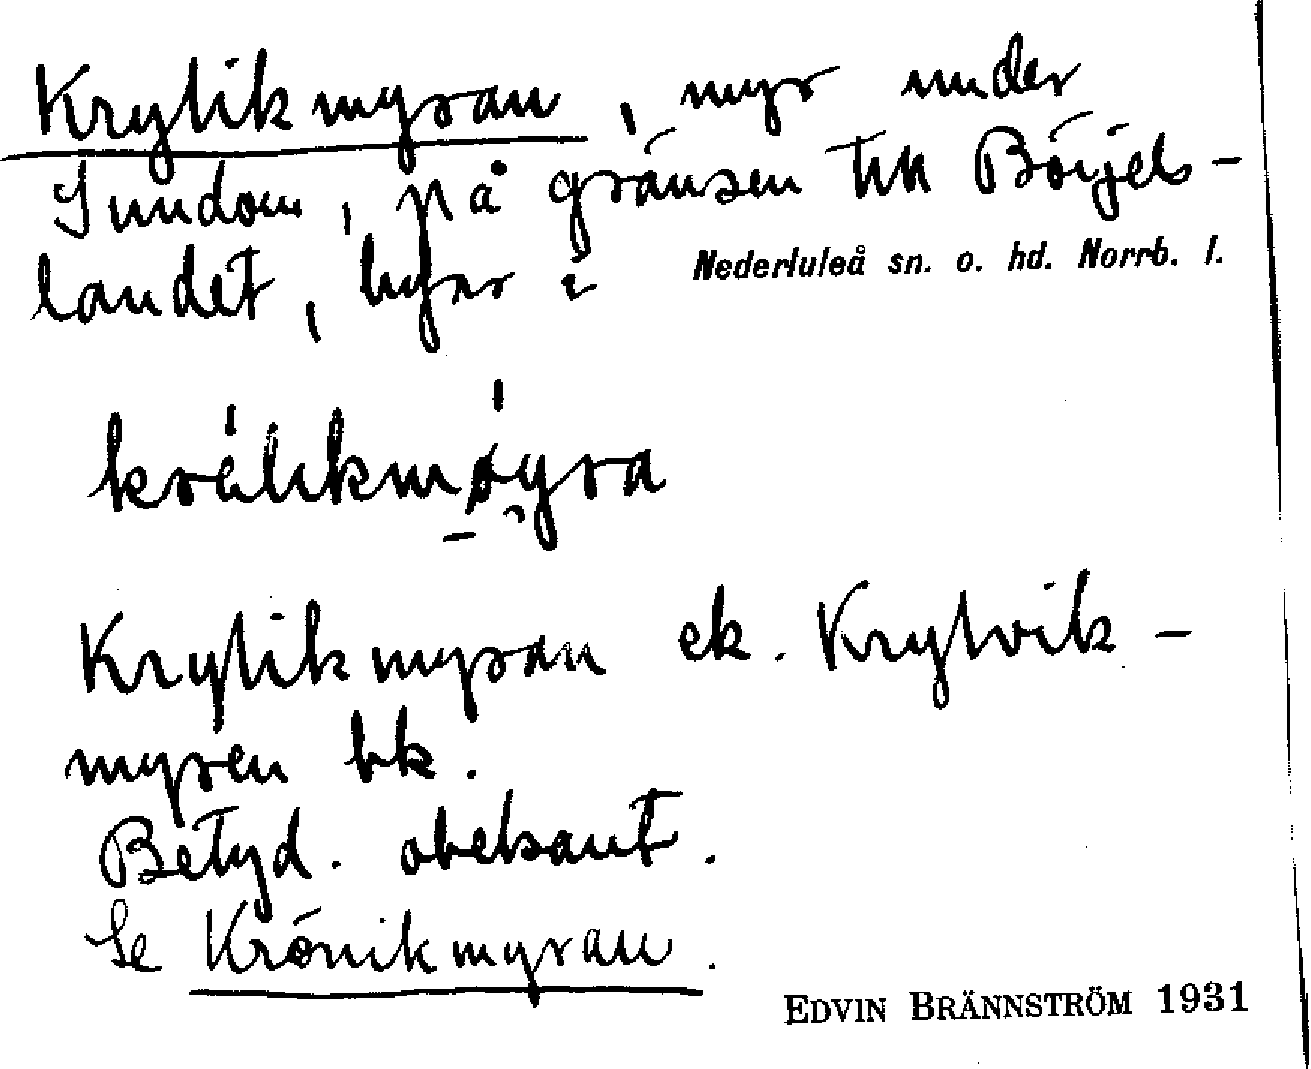 Krylikmyran, myr under
Sundom, på gränsen till Börjels-
landet, byar i Nederluleå sn. o. hd. Norrb. l.
krälikmøyra
Krylikmyran ek. Krylvik-
myren bk.
Betyd. obekant.
Se Krönikmyran.
EDVIN BRÄNNSTRÖM 1931